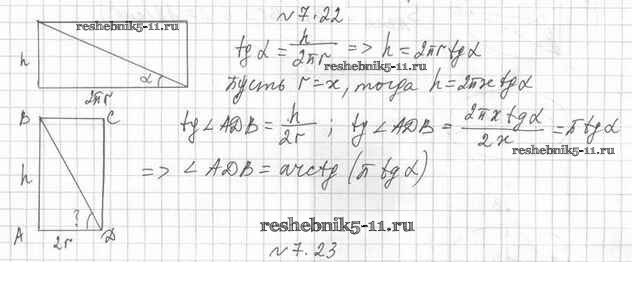 №7.22
reshebnik5-11.ru
h
α
2πr
tgα = h/2πr => h = 2πr tgα
reshebnik5-11.ru
Пусть r = x, тогда h = 2πx tgα
B C
h
?
A 2r D
tg∠ADB = h/2r ; tg∠ADB = 2πx tgα/2x = π tgα
reshebnik5-11.ru
=> ∠ADB = arctg (π tgα)
reshebnik5-11.ru
№7.23